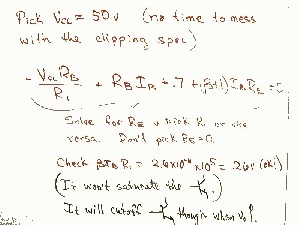 Pick Vcc = 50v (no time to mess
with the clipping spec)
- Vcc RB / R1 + RB IB + .7 + (β+1) IB RE = 0
Solve for RE & pick R1 or vice
versa. Don't pick RE = 0.
Check βIB R1 = 2.6x10⁻⁶ x10⁵ = .26v (ok!)
(It won't saturate the
It will cutoff though when